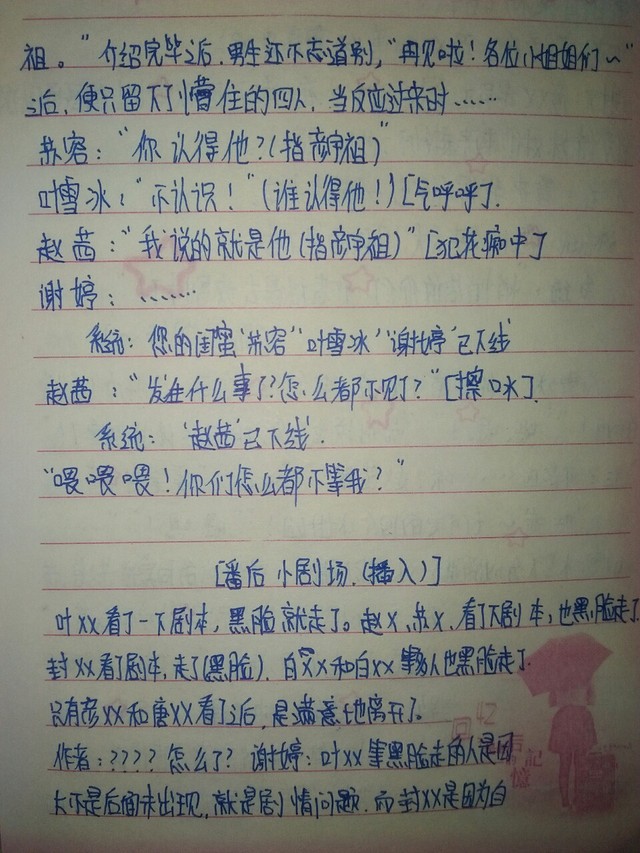 祖。”介绍完毕之后,男生还不忘道别,“再见啦!各位小姐姐们~”
之后,便只留下了懵住的四人,当反应过来时……
苏容:“你认得他?(指彦宇祖)”
叶雪冰:“不认识!”(谁认得他!)[气呼呼了.
赵茜:“我说的就是他(指彦宇祖)”[犯花痴中]
谢婷:……
系统:您的闺蜜‘苏容’‘叶雪冰’‘谢婷’已下线
赵茜:“发生什么事了?怎么都不见了?”[擦口水].
系统:‘赵茜’已下线.
“喂喂喂!你们怎么都不等我?”
[番后小剧场.(插入)]
叶xx看了一下剧本,黑脸就走了。赵x、苏x、看了下剧本,也黑脸走了.
封xx看了剧本,走了(黑脸).白xx和白xx等人也黑脸走了.
只有彦xx和唐xx看了之后,是满意地离开了。
作者:????怎么了?谢婷:叶xx等黑脸走的人是因
为不是后面未出现,就是剧情问题.而封xx是因为白
记憶